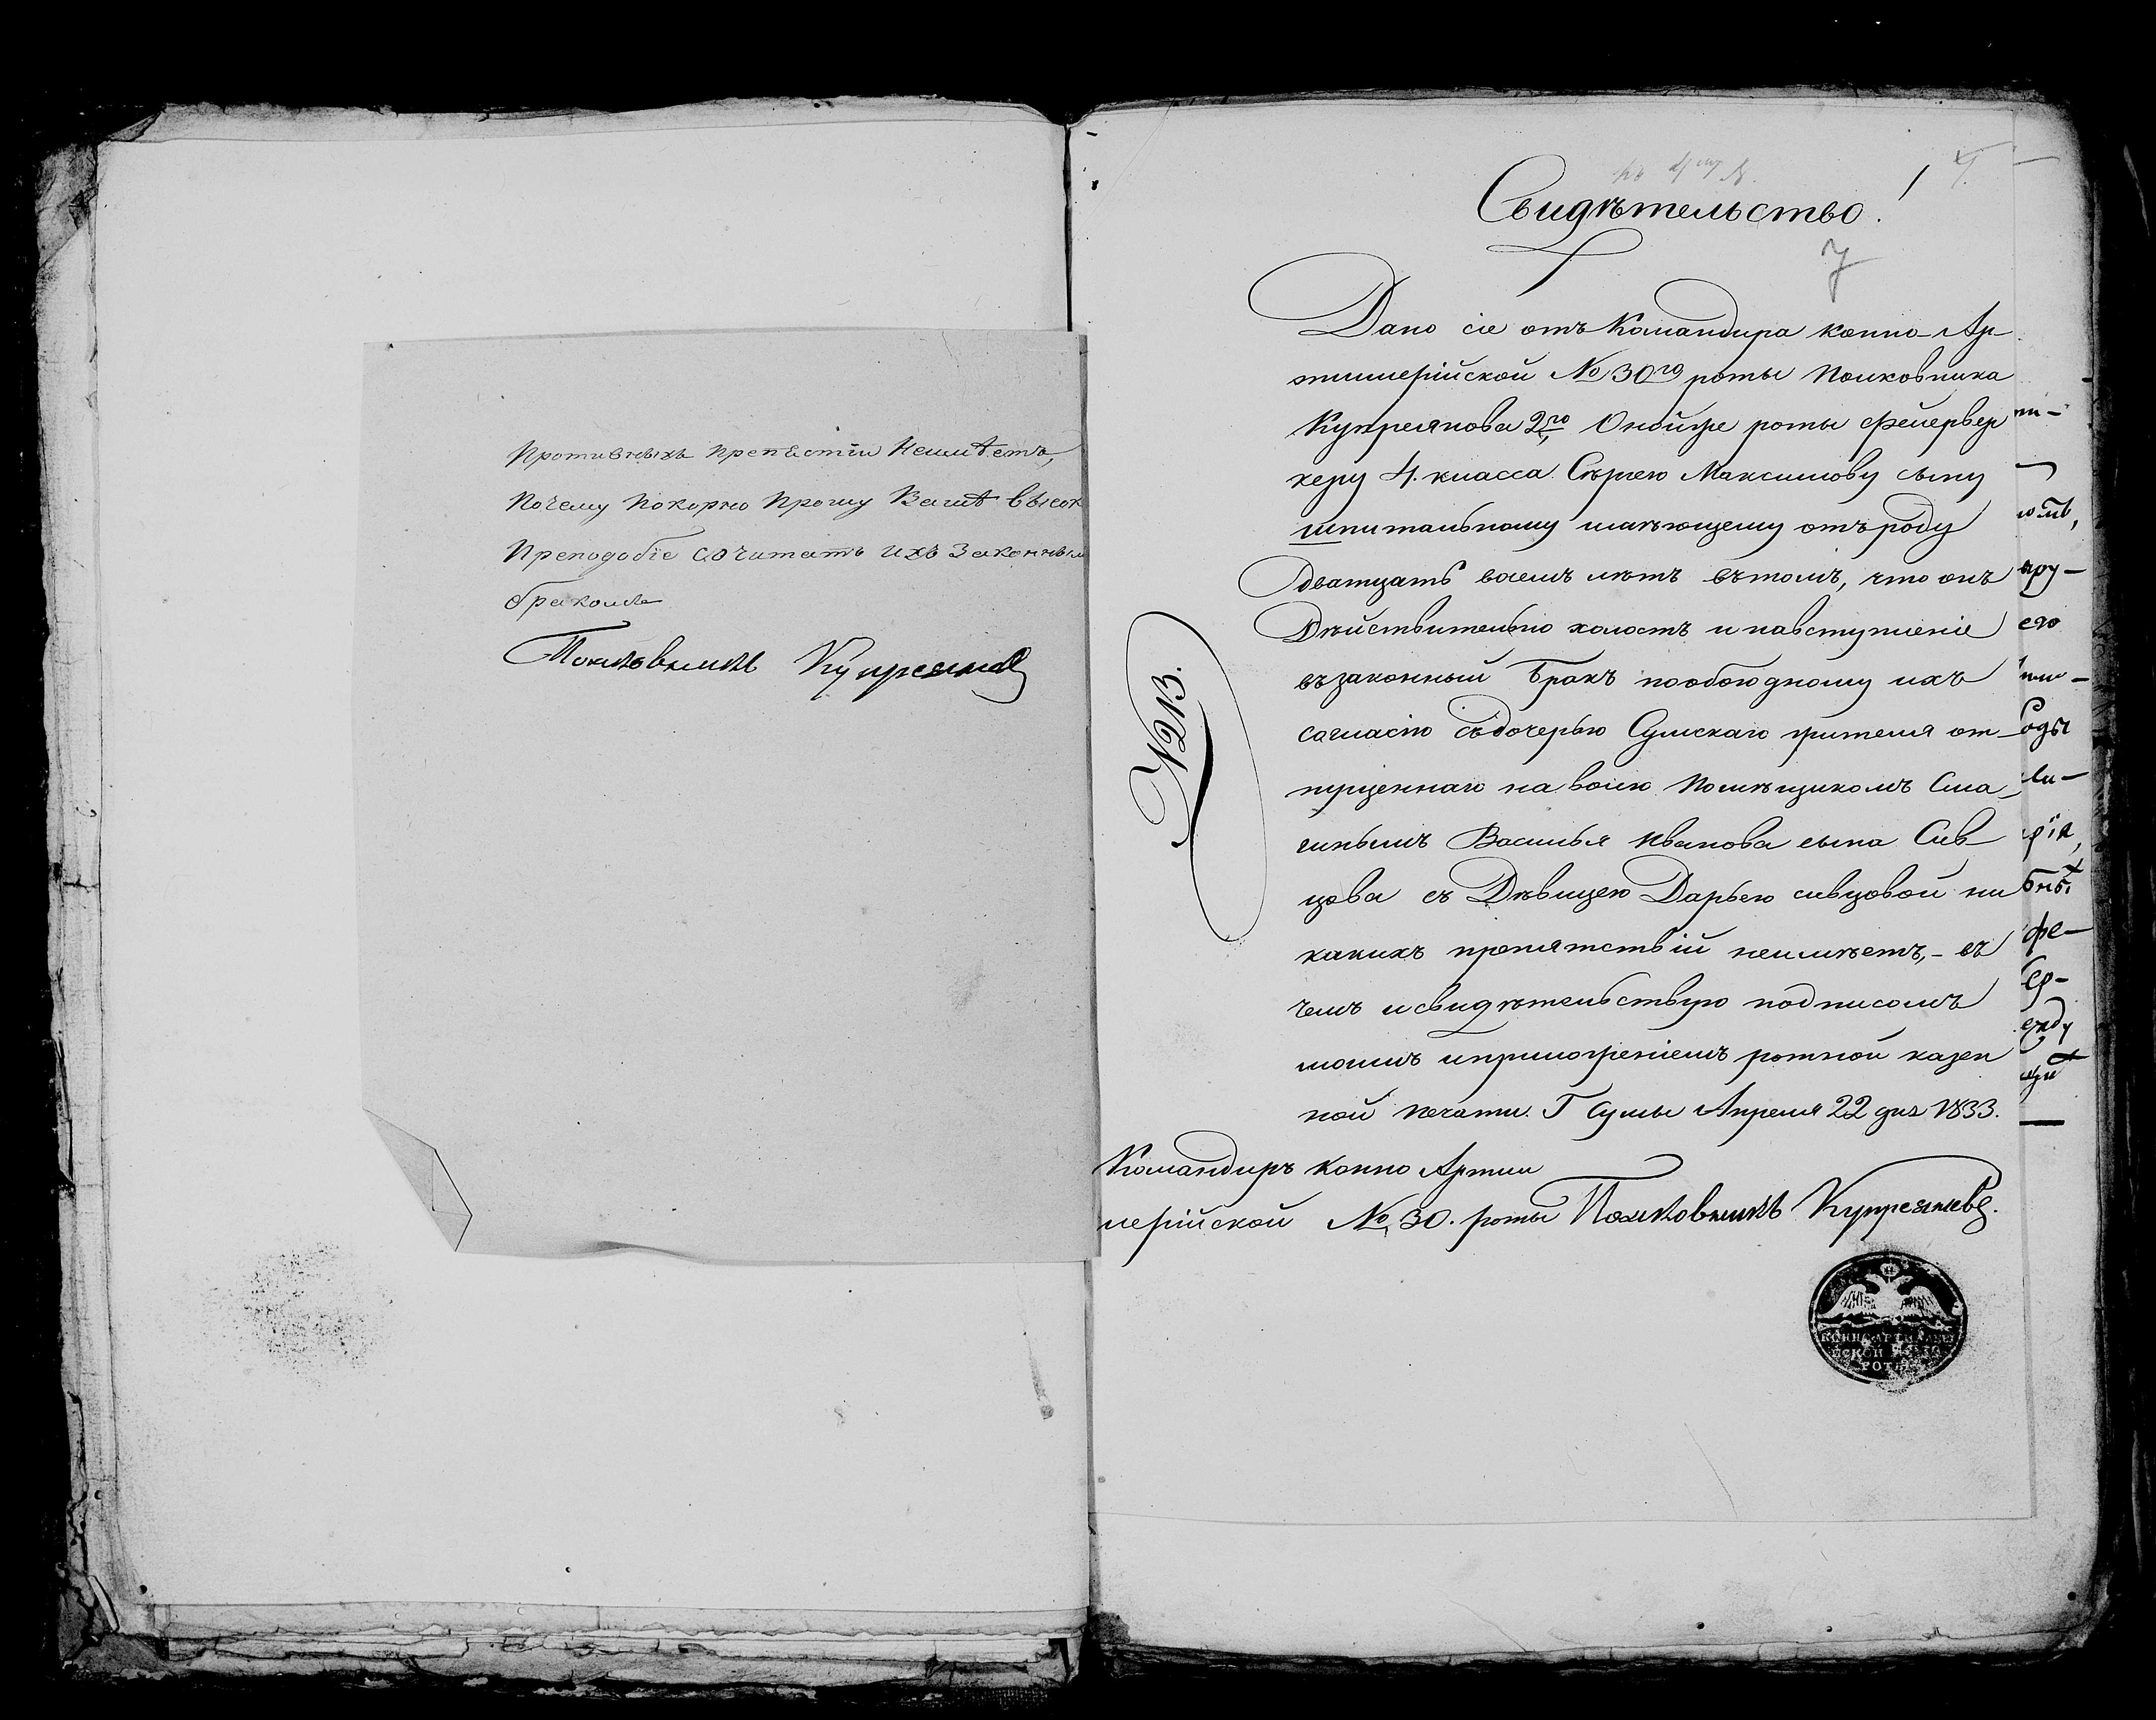 Противныхъ препѣстiи неимѣетъ,
почему покорно прошу Вашѣ высок
преподобiе сочитать ихъ законным
бракомъ
Полковникъ Купреяновъ
Свидѣтельство.
7
Дано сiе отъ Командира конно-Ар
тиллерiйской № 30го роты Полковника
Купреянова 2го Онойже роты Фейервер
керу 4. класса Сѣргею Максимову сыну
шпитальному имѣющему отъ роду
Дватцать восемъ лѣтъ вътомъ, что онъ
Дѣйствительно холостъ и навступленiе
въ законный Бракъ пообоюдному ихъ
согласiю съдочерью Сумскаго жителя от
пущеннаго на волю Помѣщикомъ Сма
гинымъ Василья Иванова сына Сив
цова съ Дѣвицею Дарьею сивцовой ни
какихъ препятствiй неимѣетъ,- въ
чемъ исвидѣтельствую подписомъ
моимъ иприложенiемъ ротной казен
ной печати. Г Сумы Апреля 22 дня 1833.
№ 213.
Командиръ конно Артил
лерiйской № 30. роты Полковникъ Купреяновъ.
КОННО АРТИЛЛЕРI
ЙСКОЙ
РОТЫ